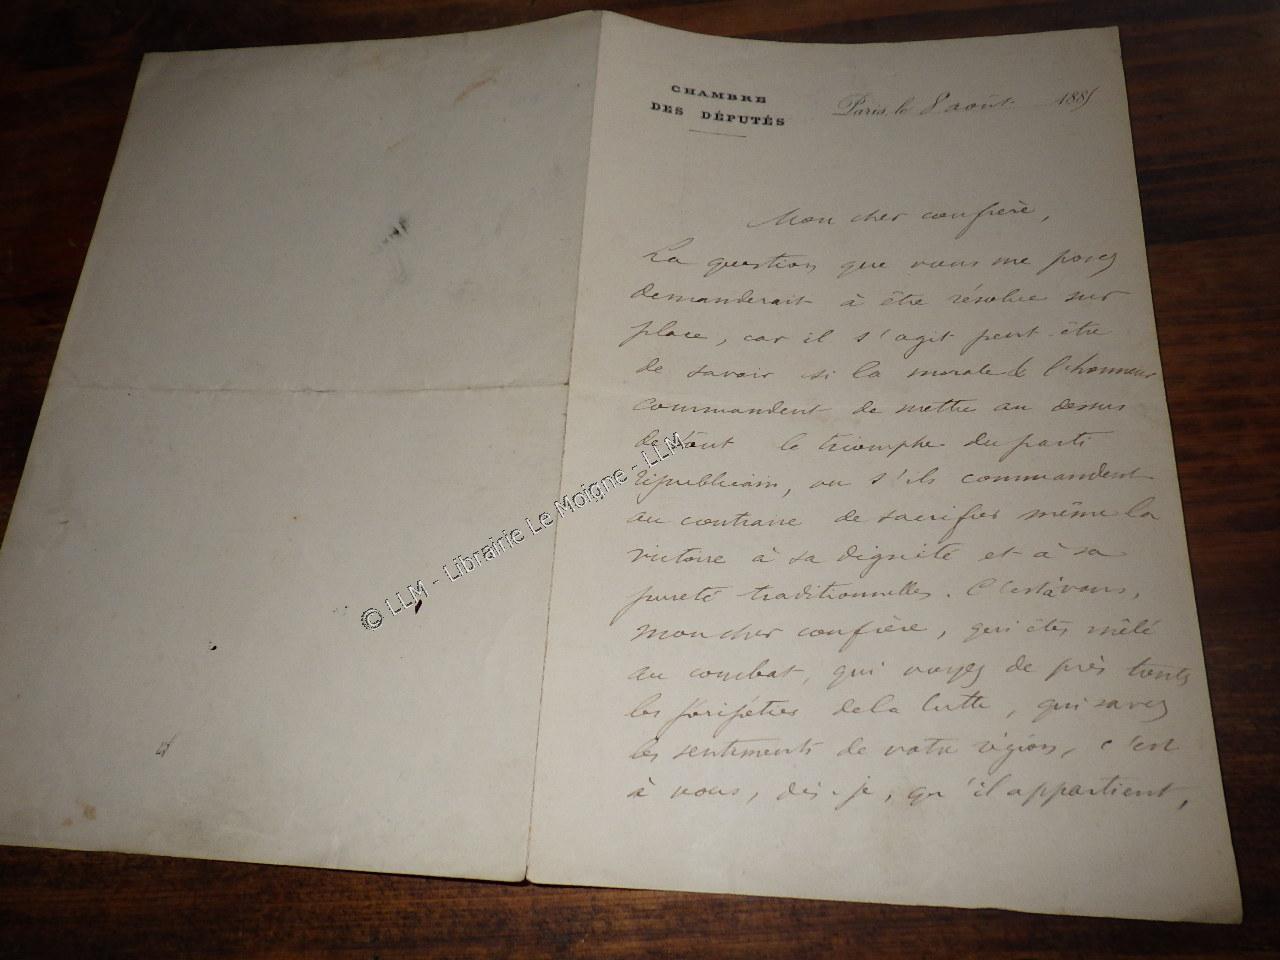 CHAMBRE
DES DÉPUTÉS
Paris, le 8 août 1885
Mon cher confrère,
La question que vous me posez
demanderait à être résolue sur
place, car il s'agit peut-être
de savoir si la morale & l'honneur
commandent de mettre au dessus
de tout le triomphe du parti
républicain, ou s'ils commandent
au contraire de sacrifier même la
victoire à sa dignité et à sa
pureté traditionnelles. C'est à vous,
mon cher confrère, qui êtes mêlé
au combat, qui voyez de près toutes
les péripéties de la lutte, qui savez
les sentiments de votre région, c'est
à vous, dis-je, qu'il appartient,
© LLM - Librairie Le Moigne - LLM